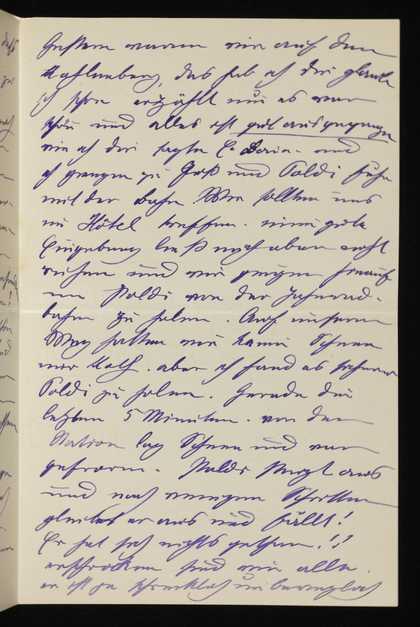 Gestern waren wir auf dem
Kahlenberg, das hab ich dir glaube
ich schon erzählt nun es war
schön und alles ist gut ausgegangen
wie ich dir sagte E. Daria. und
ich giengen zu Fuß und Poldi fuhr
mit der Bahn. Wir sollten uns
im Hôtel treffen. meine gute
Eingebung ließ mich aber nicht
ruhen und wir giengen hinauf
um Poldi von der Zahnrad-
bahn zu holen. Auf unserem
Weg hatten wir kaum Schnee
nur Koth. aber ich fand es sicherer
Poldi zu holen. Gerade die
letzten 5 Minuten von der
Station lag Schnee und war
gefroren. Poldi steigt aus
und nach wenigen Schritten
gleitet er aus und fällt!
Er hat sich nichts gethan!!
erschrocken sind wir alle.
er ist ja schrecklich unbeweglich